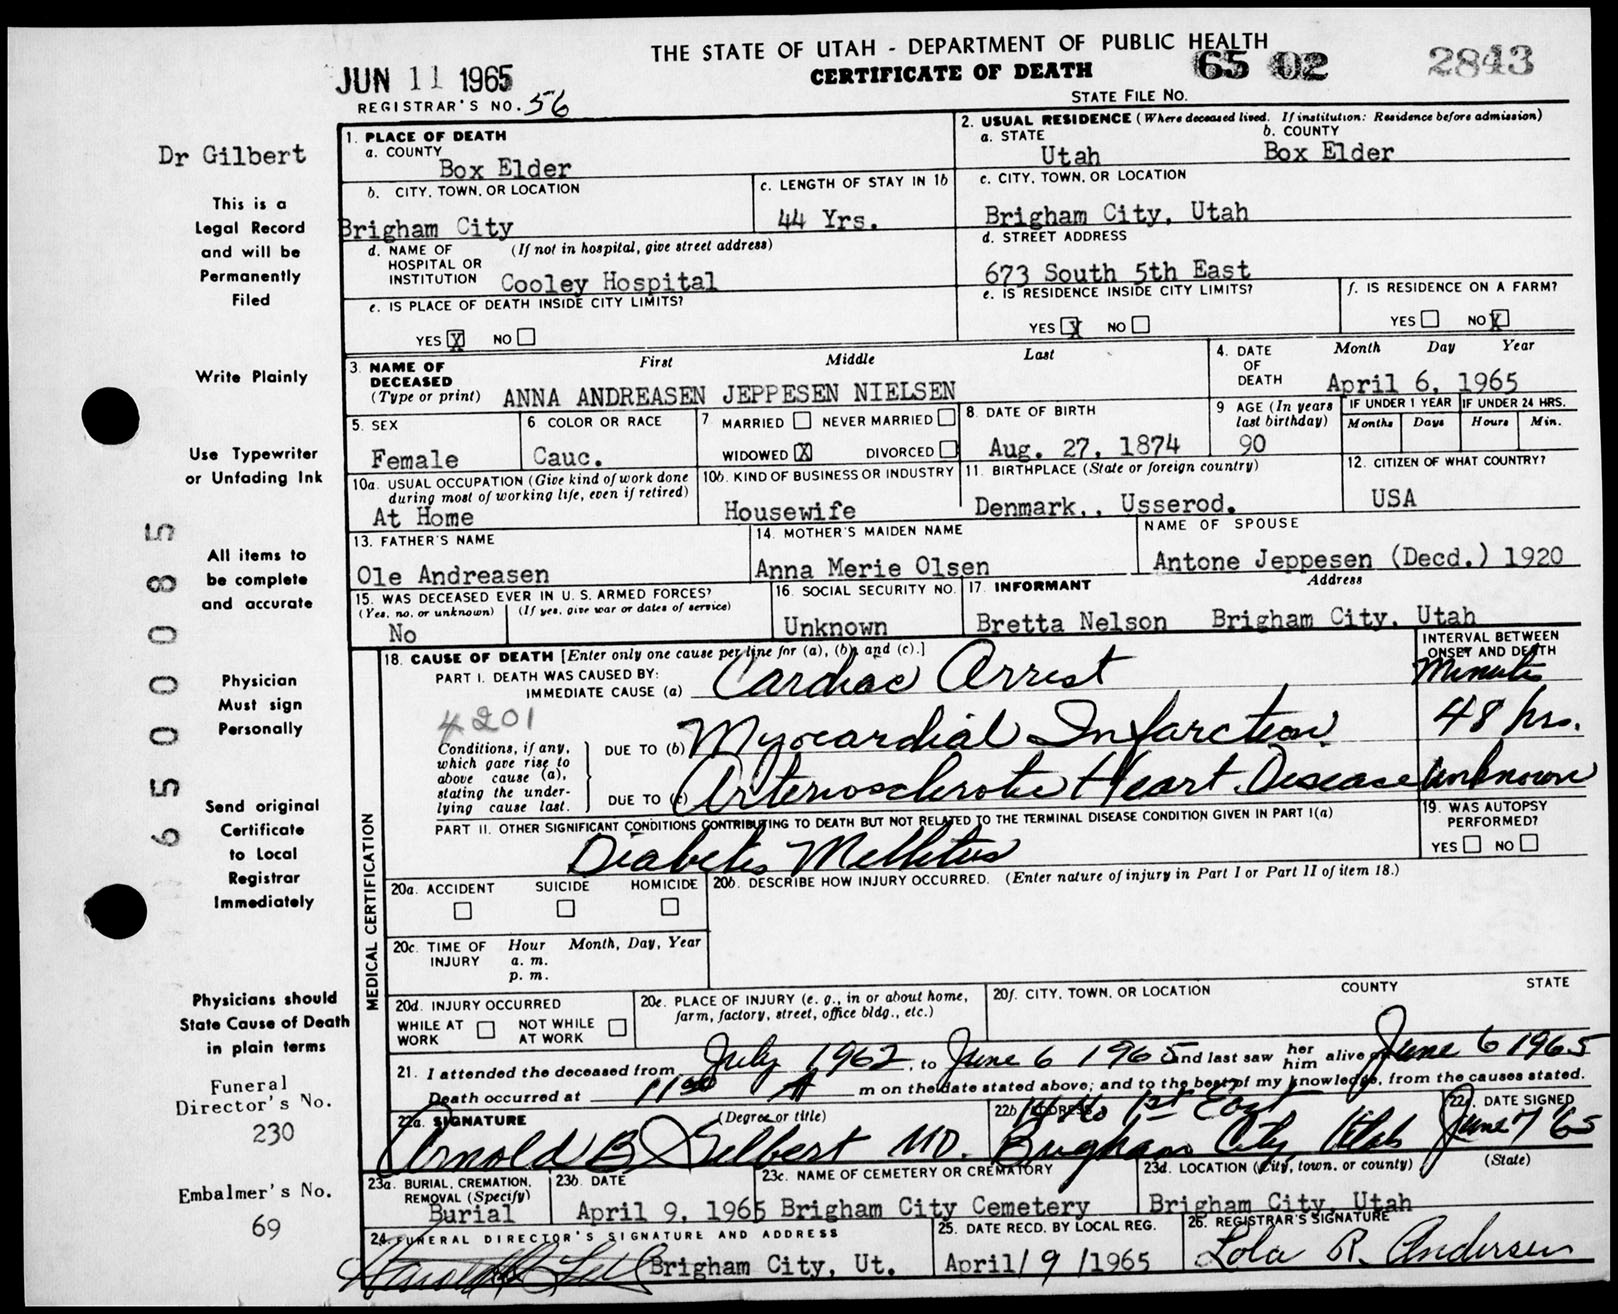 THE STATE OF UTAH - DEPARTMENT OF PUBLIC HEALTH
CERTIFICATE OF DEATH
65 02 2843
STATE FILE NO.
JUN 11 1965
REGISTRAR'S NO. 56
Dr Gilbert
This is a
Legal Record
and will be
Permanently
Filed
Write Plainly
Use Typewriter
or Unfading Ink
All items to
be complete
and accurate
Physician
Must sign
Personally
Send original
Certificate
to Local
Registrar
Immediately
Physicians should
State Cause of Death
in plain terms
Funeral
Director's No.
230
Embalmer's No.
69
65000085
1. PLACE OF DEATH
a. COUNTY
Box Elder
2. USUAL RESIDENCE (Where deceased lived. If institution: Residence before admission)
a. STATE b. COUNTY
Utah Box Elder
b. CITY, TOWN, OR LOCATION
Brigham City
c. LENGTH OF STAY IN 1b
44 Yrs.
c. CITY, TOWN, OR LOCATION
Brigham City, Utah
d. NAME OF HOSPITAL OR INSTITUTION (If not in hospital, give street address)
Cooley Hospital
d. STREET ADDRESS
673 South 5th East
e. IS PLACE OF DEATH INSIDE CITY LIMITS?
YES X NO
e. IS RESIDENCE INSIDE CITY LIMITS?
YES X NO
f. IS RESIDENCE ON A FARM?
YES NO X
3. NAME OF DECEASED (Type or print) First Middle Last
ANNA ANDREASEN JEPPESEN NIELSEN
4. DATE OF DEATH Month Day Year
April 6, 1965
5. SEX
Female
6 COLOR OR RACE
Cauc.
7 MARRIED NEVER MARRIED
WIDOWED X DIVORCED
8. DATE OF BIRTH
Aug. 27, 1874
9 AGE (In years last birthday)
90
IF UNDER 1 YEAR IF UNDER 24 HRS.
Months Days Hours Min.
10a. USUAL OCCUPATION (Give kind of work done during most of working life, even if retired)
At Home
10b. KIND OF BUSINESS OR INDUSTRY
Housewife
11. BIRTHPLACE (State or foreign country)
Denmark,, Usserod.
12. CITIZEN OF WHAT COUNTRY?
USA
13. FATHER'S NAME
Ole Andreasen
14. MOTHER'S MAIDEN NAME
Anna Merie Olsen
NAME OF SPOUSE
Antone Jeppesen (Decd.) 1920
15. WAS DECEASED EVER IN U. S. ARMED FORCES?
(Yes, no, or unknown) (If yes, give war or dates of service)
No
16. SOCIAL SECURITY NO.
Unknown
17. INFORMANT Address
Bretta Nelson Brigham City, Utah
MEDICAL CERTIFICATION
18. CAUSE OF DEATH [Enter only one cause per line for (a), (b), and (c).]
INTERVAL BETWEEN ONSET AND DEATH
PART I. DEATH WAS CAUSED BY:
IMMEDIATE CAUSE (a) Cardiac Arrest Minutes
4201
Conditions, if any, which gave rise to above cause (a), stating the underlying cause last.
DUE TO (b) Myocardial Infarction 48 hrs.
DUE TO (c) Arteriosclerotic Heart Disease Unknown
PART II. OTHER SIGNIFICANT CONDITIONS CONTRIBUTING TO DEATH BUT NOT RELATED TO THE TERMINAL DISEASE CONDITION GIVEN IN PART I(a)
Diabetes Mellitus
19. WAS AUTOPSY PERFORMED?
YES NO
20a. ACCIDENT SUICIDE HOMICIDE
20b. DESCRIBE HOW INJURY OCCURRED. (Enter nature of injury in Part I or Part II of item 18.)
20c. TIME OF INJURY Hour Month, Day, Year
a. m.
p. m.
20d. INJURY OCCURRED
WHILE AT WORK NOT WHILE AT WORK
20e. PLACE OF INJURY (e. g., in or about home, farm, factory, street, office bldg., etc.)
20f. CITY, TOWN, OR LOCATION COUNTY STATE
21. I attended the deceased from July 1962, to June 6 1965 and last saw her him alive on June 6 1965
Death occurred at 1150 A m on the date stated above; and to the best of my knowledge, from the causes stated.
22a. SIGNATURE (Degree or title)
Arnold B Gilbert MD.
22b ADDRESS
1st East
Brigham City, Utah
22c. DATE SIGNED
June 7 '65
23a. BURIAL, CREMATION, REMOVAL (Specify)
Burial
23b. DATE
April 9, 1965
23c. NAME OF CEMETERY OR CREMATORY
Brigham City Cemetery
23d. LOCATION (City, town, or county) (State)
Brigham City, Utah
24. FUNERAL DIRECTOR'S SIGNATURE AND ADDRESS
Brigham City, Ut.
25. DATE RECD. BY LOCAL REG.
April/ 9 /1965
26. REGISTRAR'S SIGNATURE
Lola R. Andersen